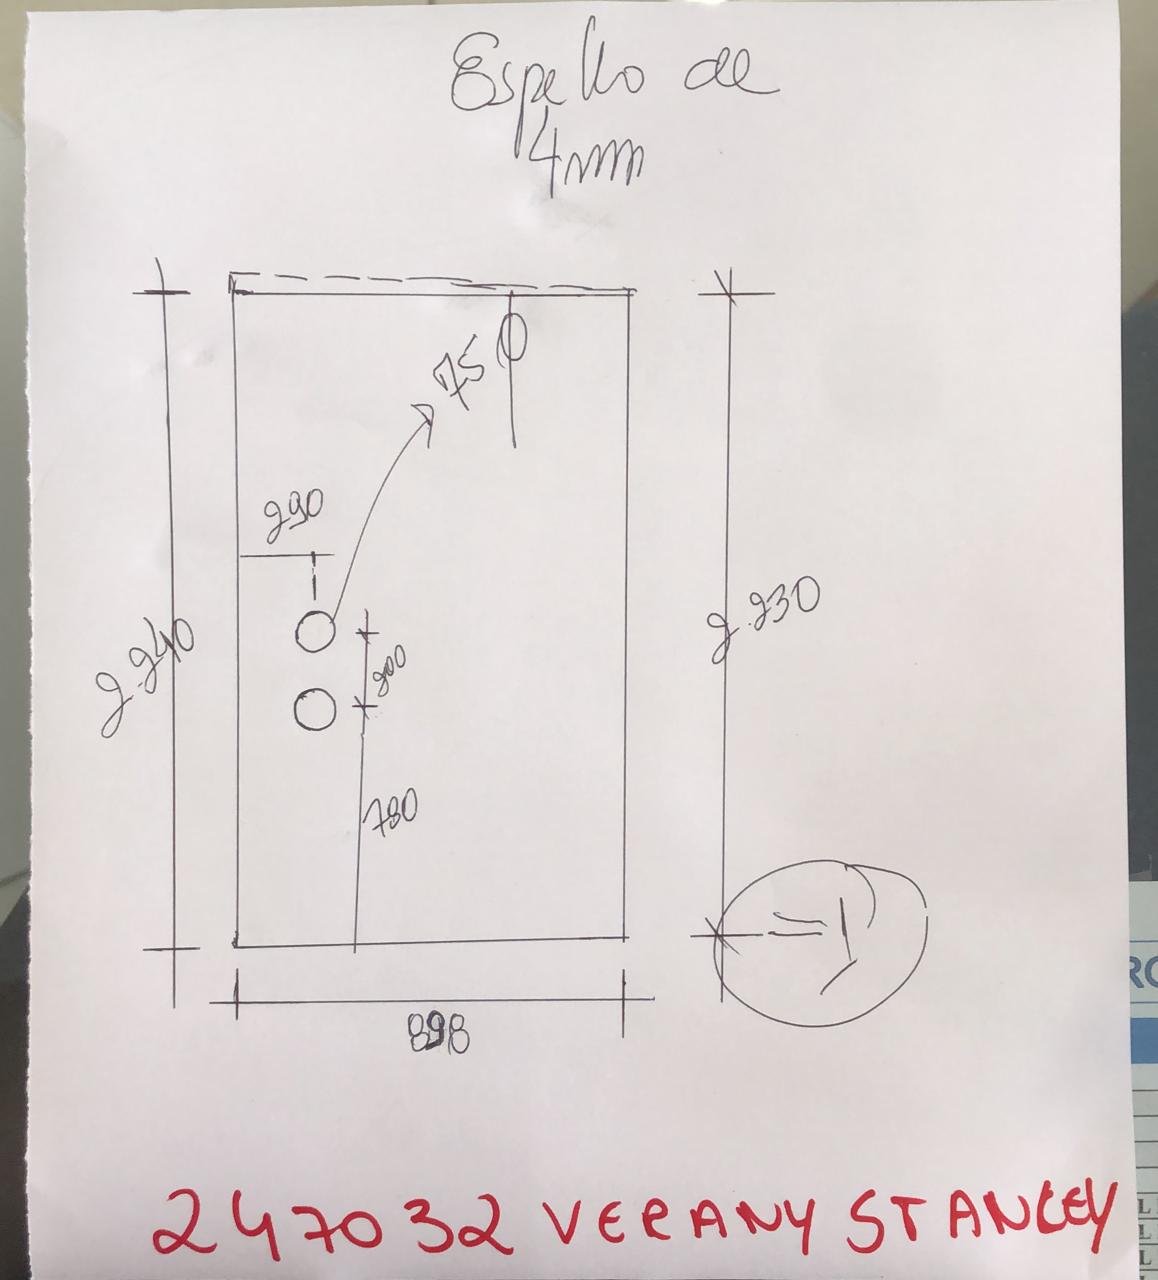 Espelho de
4mm
75
290
2.240
200
2.230
780
898
=1
RO
247032 VERANY STANLEY